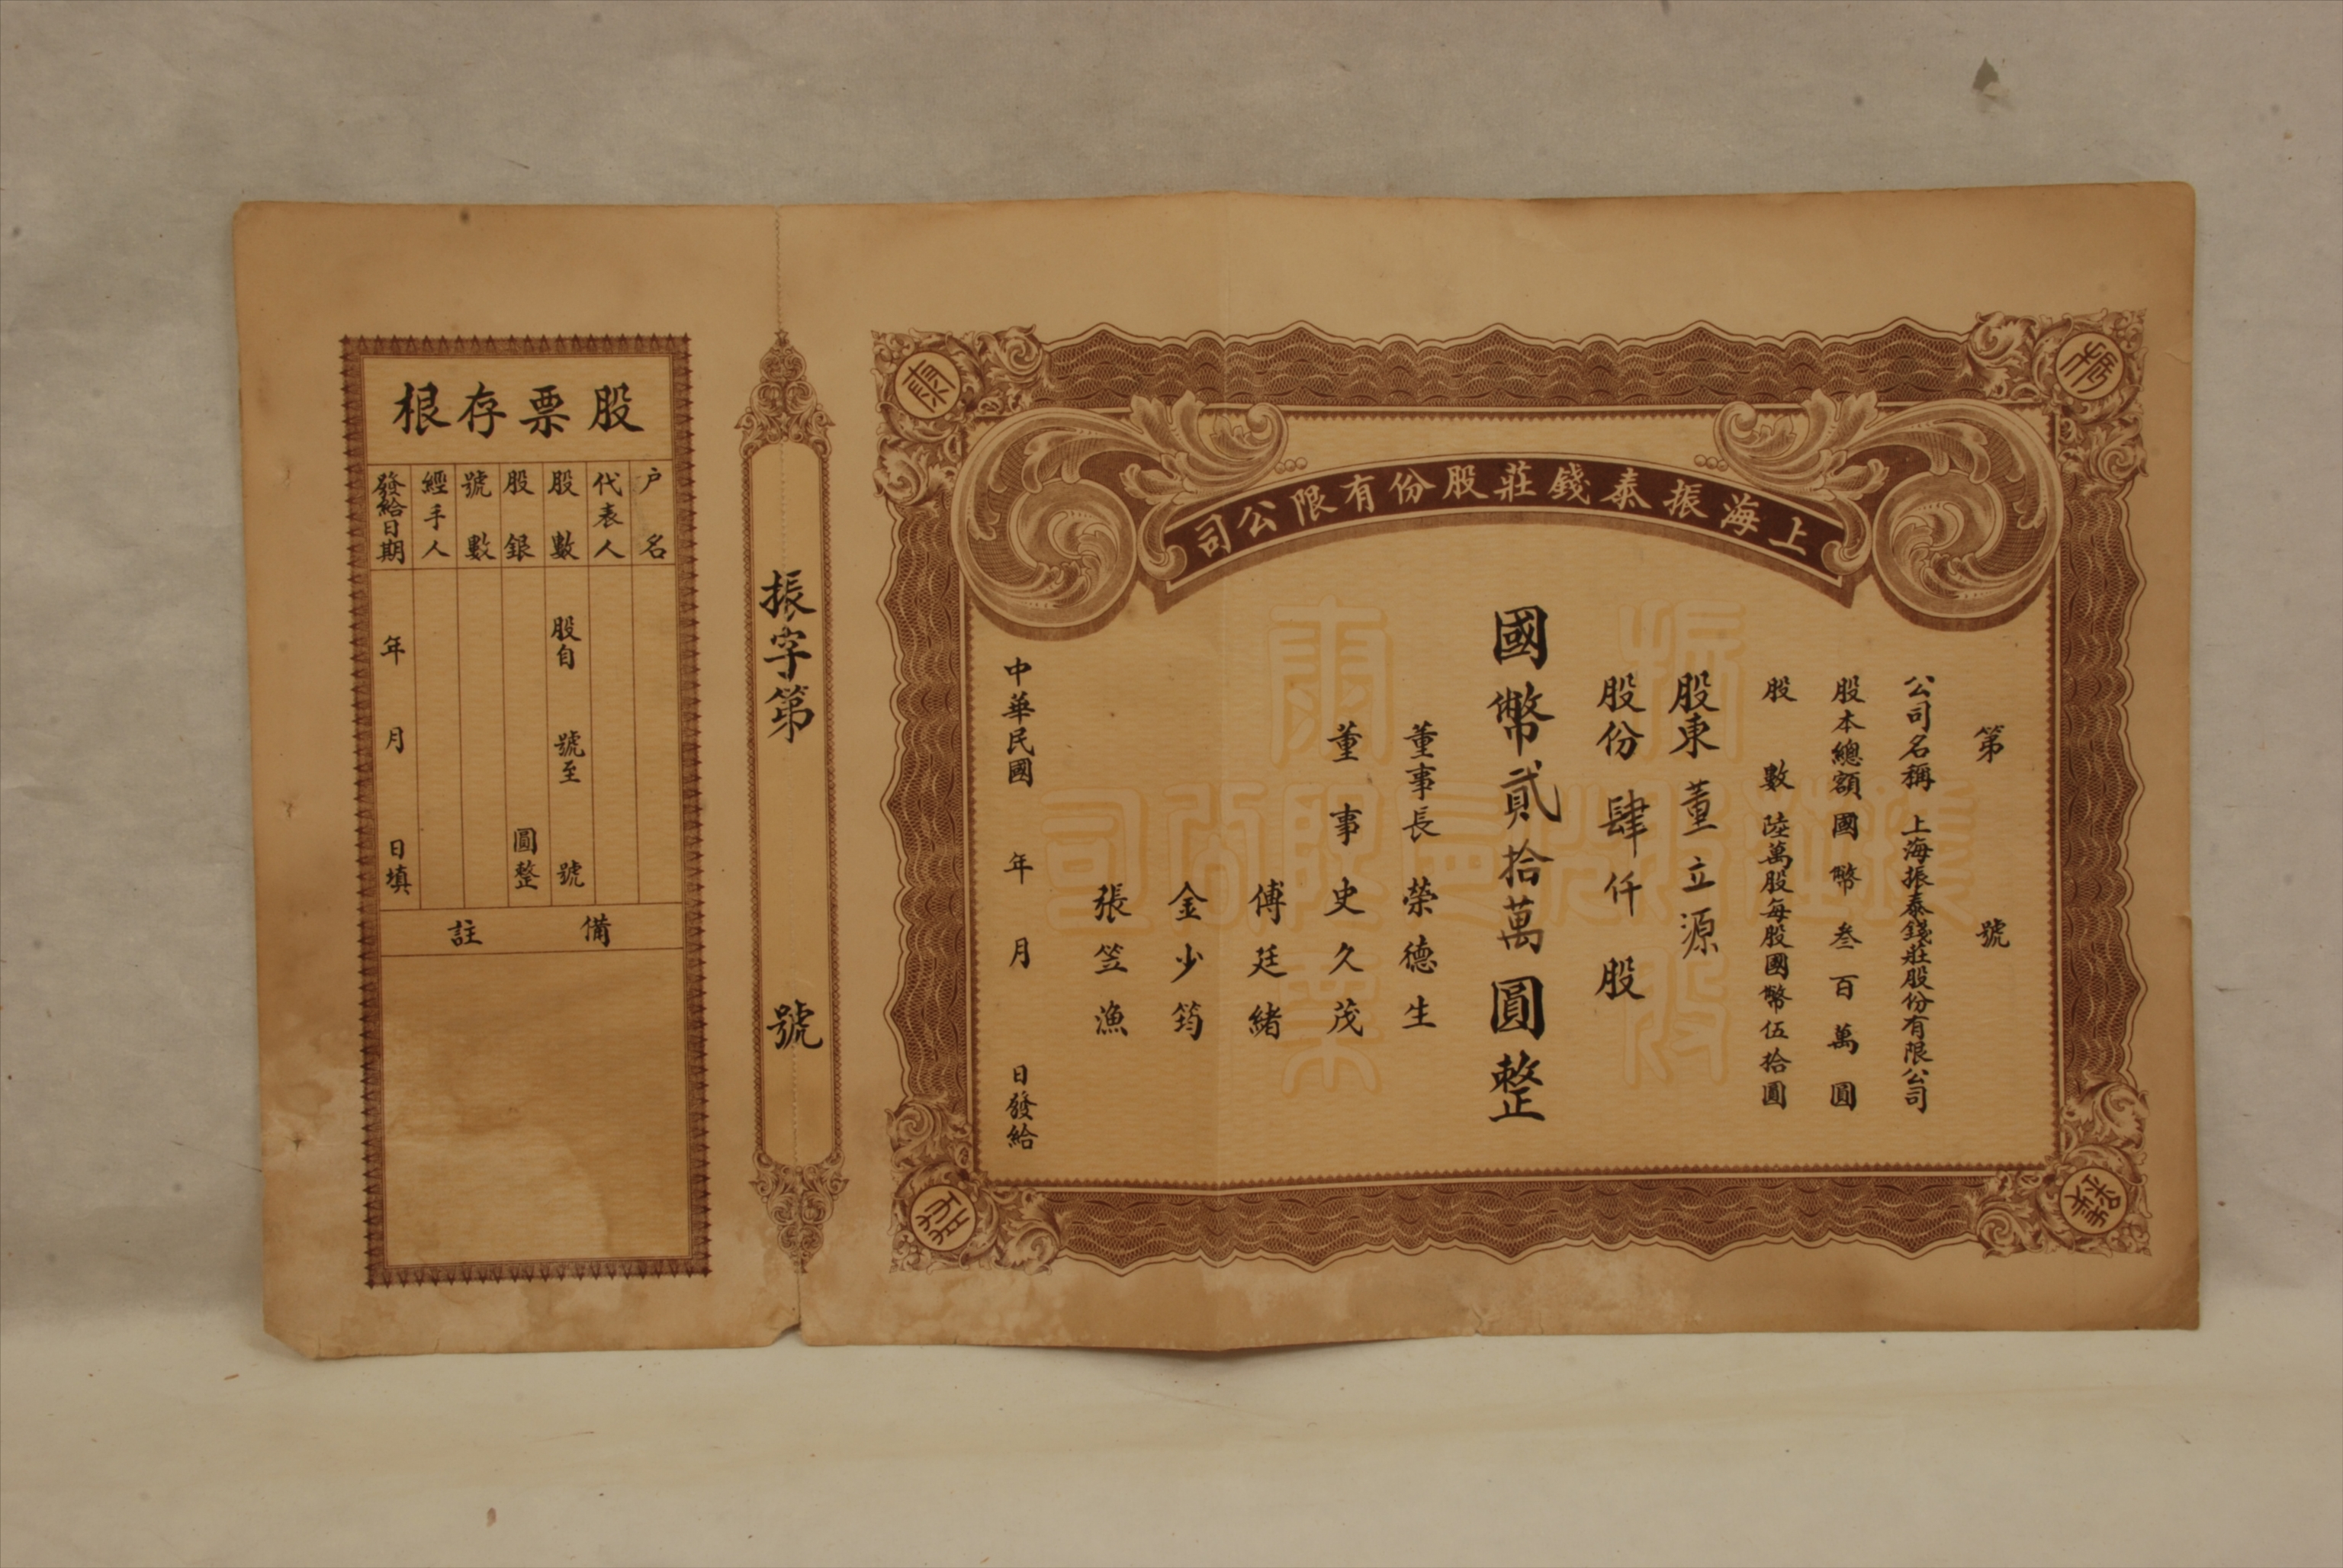 上海振泰錢莊股份有限公司
第 號
公司名稱 上海振泰錢莊股份有限公司
股本總額國幣叁百萬圓
股數陸萬股每股國幣伍拾圓
股東董立源
股份肆仟股
國幣貳拾萬圓整
董事長 榮德生
董事 史久茂
傅廷緒
金少筠
張笠漁
中華民國 年 月 日發給
振字第 號
股票存根
户名
代表人
股數 股自 號至 號
股銀 圓整
號數
經手人
發給日期 年 月 日填
備註